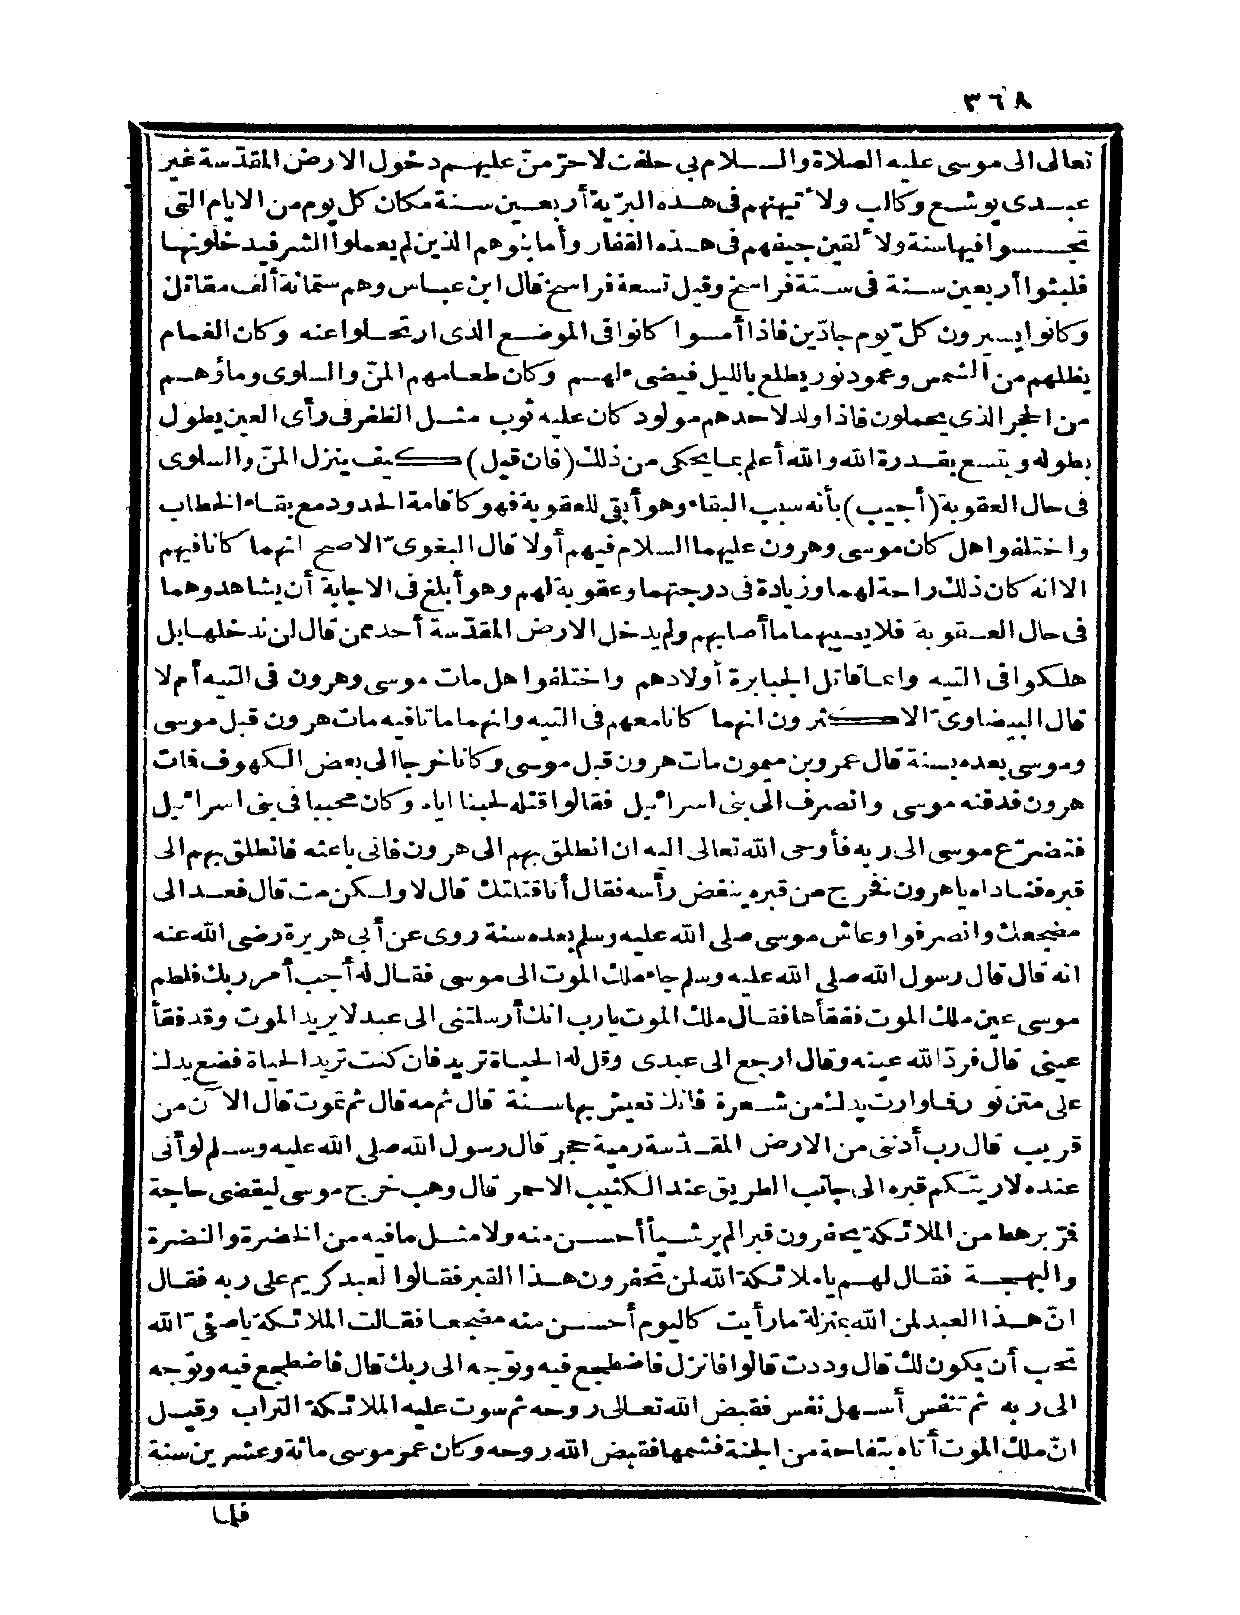 ٣٦٨
تعالى الى موسى عليه الصلاة والسلام بى حلفت لاحرّمنّ عليهم دخول الارض المقدّسة غير
عبدى يوشع وكالب ولا ٔتيهنهم فى هذه البرّية أربعين سنة مكان كل يوم من الايام التى
تجسسوا فيها سنة ولا ٔلقين جيفهم فى هذه القفار وأما بنوهم الذين لم يعملوا الشر فيدخلونها
فلبثوا أربعين سنة فى ستة فراسخ وقيل تسعة فراسخ قال ابن عباس وهم ستمائة ألف مقاتل
وكانوا يسيرون كلّ يوم جادّين فاذا أمسوا كانوا فى الموضع الذى ارتحلوا عنه وكان الغمام
يظلهم من الشمس وعمود نور يطلع بالليل فيضىء لهم وكان طعامهم المنّ والسلوى وماؤهم
من الحجر الذى يحملون فاذا ولد لاحدهم مولود كان عليه ثوب مثل الظفر فى رأى العين يطول
بطوله ويتسع بقدرة الله والله أعلم بما يحكى من ذلك (فان قيل) كيف ينزل المنّ والسلوى
فى حال العقوبة (أجيب) بأنه سبب البقاء وهو أبقى للعقوبة فهو كاقامة الحدود مع بقاء الخطاب
واختلفوا هل كان موسى وهرون عليهما السلام فيهم أولا قال البغوىّ الاصح انهما كانا فيهم
الا انه كان ذلك راحة لهما وزيادة فى درجتهما وعقوبة لهم وهو أبلغ فى الاجابة أن يشاهدوهما
فى حال العقوبة فلا يصيبهما ما أصابهم ولم يدخل الارض المقدّسة أحد ممن قال لن ندخلها بل
هلكوا فى التيه وانما قاتل الجبابرة أولادهم واختلفوا هل مات موسى وهرون فى التيه أم لا
قال البيضاوىّ الاكثرون انهما كانا معهم فى التيه وانهما ماتا فيه مات هرون قبل موسى
وموسى بعده بسنة قال عمرو بن ميمون مات هرون قبل موسى وكانا خرجا الى بعض الكهوف فمات
هرون فدفنه موسى وانصرف الى بنى اسرائيل فقالوا قتله لحبنا اياه وكان محببا فى بنى اسرائيل
فتضرّع موسى الى ربه فأوحى الله تعالى اليه ان انطلق بهم الى هرون فانى باعثه فانطلق بهم الى
قبره فناداه ياهرون فخرج من قبره ينفض رأسه فقال أنا قتلتك قال لا ولكن مت قال فعد الى
مضجعك وانصرفوا وعاش موسى صلى الله عليه وسلم بعده سنة روى عن أبى هريرة رضى الله عنه
انه قال قال رسول الله صلى الله عليه وسلم جاء ملك الموت الى موسى فقال له أجب أمر ربك فلطم
موسى عين ملك الموت ففقأها فقال ملك الموت يارب انك أرسلتنى الى عبد لايريد الموت وقد فقأ
عينى قال فردّ الله عينه وقال ارجع الى عبدى وقل له الحياة تريد فان كنت تريد الحياة فضع يدك
على متن ثور فما وارت يدك من شعرة فانك تعيش بها سنة قال ثم مه قال ثم تموت قال الآن من
قريب قال رب أدننى من الارض المقدّسة رمية حجر قال رسول الله صلى الله عليه وسلم لو أنى
عنده لاريتكم قبره الى جانب الطريق عند الكثيب الاحمر قال وهب خرج موسى ليقضى حاجة
فمرّ برهط من الملائكة يحفرون قبرا لم ير شيأ أحسن منه ولا مثل ما فيه من الخضرة والنضرة
والبهجة فقال لهم ياملائكة الله لمن تحفرون هذا القبر فقالوا لعبد كريم على ربه فقال
انّ هذا العبد لمن الله بمنزلة ما رأيت كاليوم أحسن منه مضجعا فقالت الملائكة ياصفىّ الله
تحب أن يكون لك قال وددت قالوا فانزل فاضطجع فيه وتوجه الى ربك قال فاضطجع فيه وتوجه
الى ربه ثم تنفس أسهل نفس فقبض الله تعالى روحه ثم سوت عليه الملائكة التراب وقيل
انّ ملك الموت أتاه بتفاحة من الجنة فشمها فقبض الله روحه وكان عمر موسى مائة وعشرين سنة
فلما